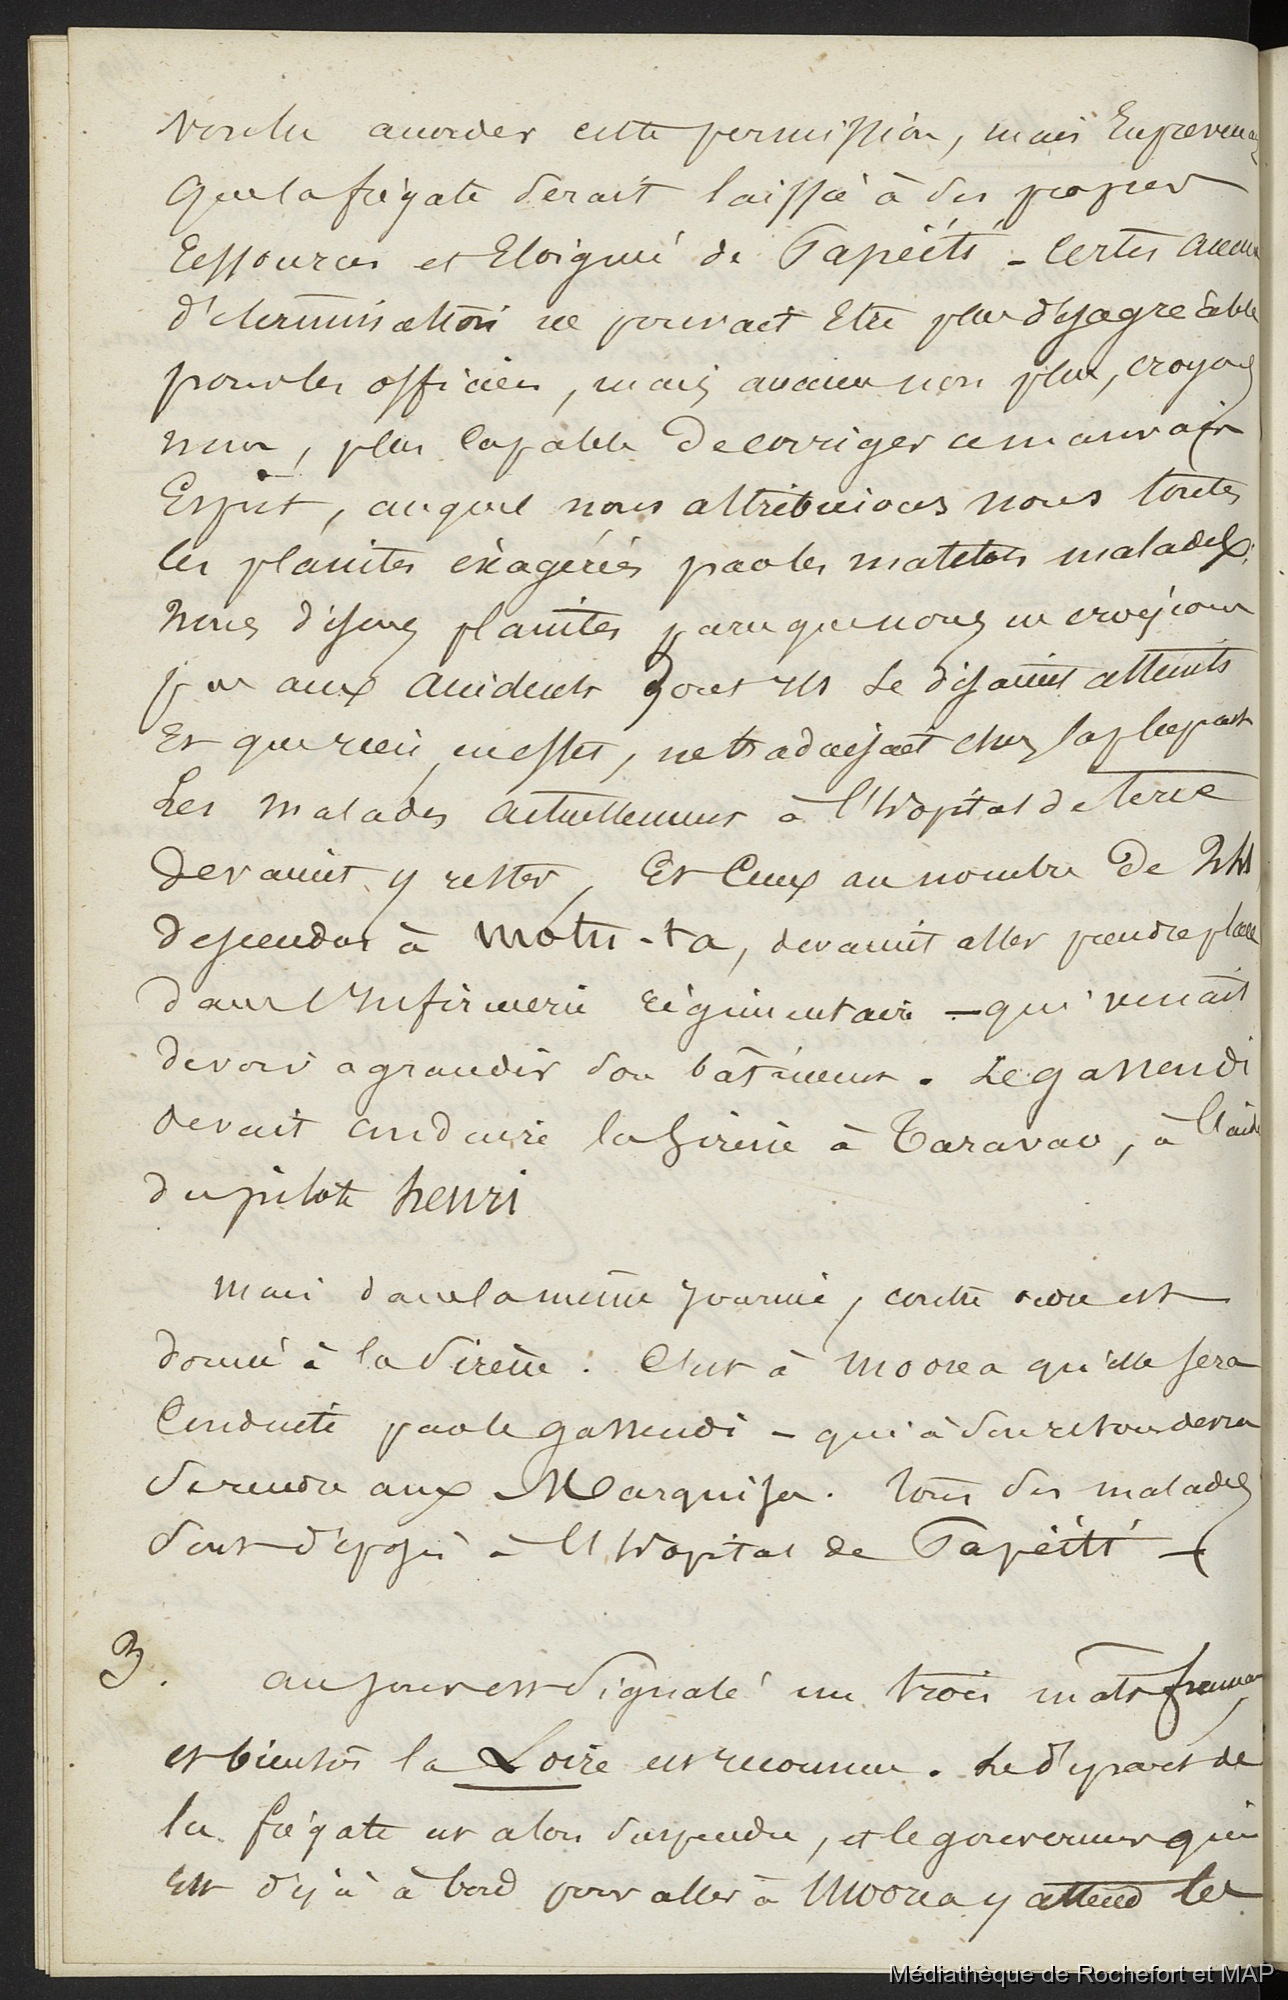 voulu accorder cette permission, mais En prevenant
que la frégate serait laissée à ses propres
Ressources et Eloigné de Papéiti - Certes aucune
détermination ne pouvait Etre plus désagréable
pour les officiers, mais aucune non plus, croyons
nous, plus Capable De corriger ce mauvais
Esprit, auquel nous attribuions nous toutes
les plaintes éxagérées par les matelots malades.
Nous disons plaintes parceque nous ne croyions
pas aux accidents Dont ils se disaient atteints
Et que rien, en effet, ne traduisait chez la plupart
Les malades actuellement à l'hopital de terre
Devaient y rester, Et Ceux au nombre De
descendus à Motu-ta, devaient aller prendre place
dans l'Infirmerie Régimentaire - qui venait
de voir agrandir son bâtiment. Le gassendi
devait Conduire la Sirène à Taravao, à l'aide
du pilote henri
Mais dans la même Journée, contre ordre est
donné à la Sirène. C'est à Moorea qu'elle sera
Conduite par le gassendi - qui à son retour devra
se rendre aux Marquises. Tous ses malades
sont déposés à l'hopital de Papéiti -
3. au jour est Signalé un trois mâts français
et bientôt la Loire est reconnue. Le départ de
la frégate est alors suspendu, et le gouverneur qui
Est déjà à bord pour aller à Moorea y attend les
Médiathèque de Rochefort et MAP